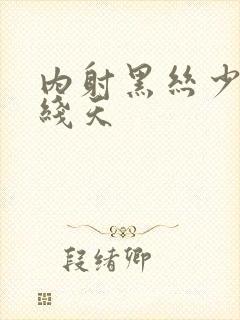 内射黑丝少
线天
段绪卿